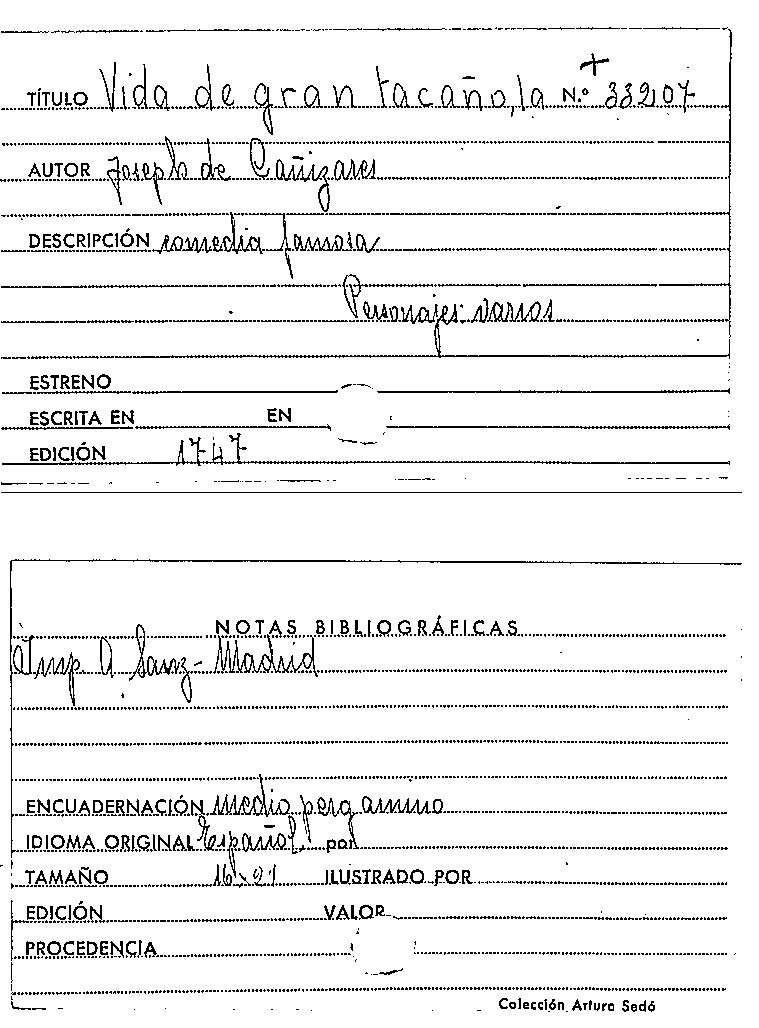 TÍTULO Vida de gran tacaño, la N.º + 33207
AUTOR Joseph de Cañizares
DESCRIPCIÓN comedia famosa
Personajes: varios
ESTRENO
ESCRITA EN EN
EDICIÓN 1747
NOTAS BIBLIOGRÁFICAS
Imp A. Sanz - Madrid
ENCUADERNACIÓN medio pergamino
IDIOMA ORIGINAL Español. por
TAMAÑO 16 x 21 ILUSTRADO POR
EDICIÓN VALOR
PROCEDENCIA
Colección Arturo Sedó